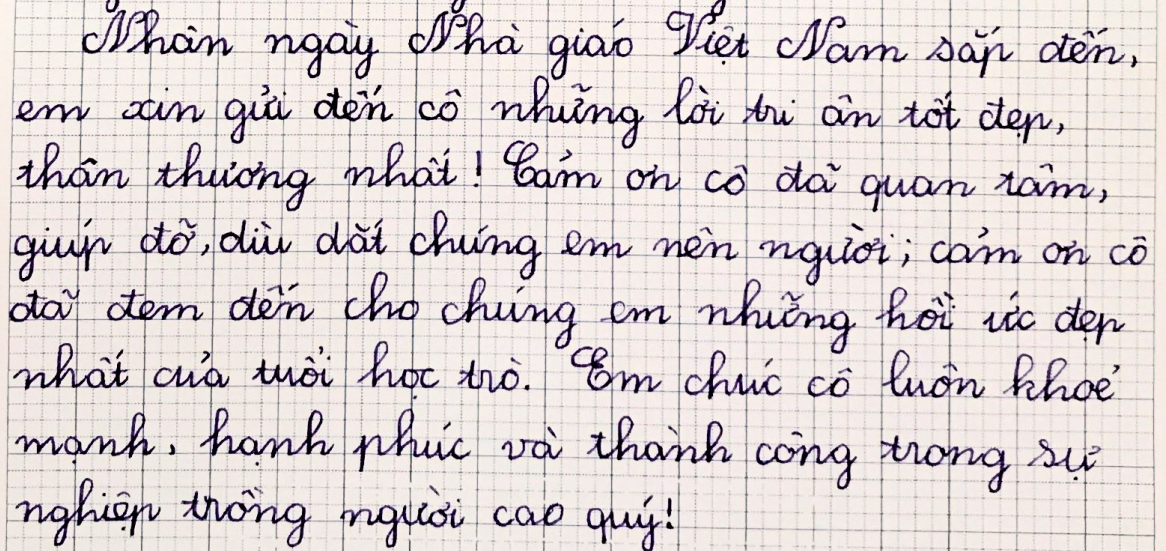 Nhân ngày Nhà giáo Việt Nam sắp đến,
em xin gửi đến cô những lời tri ân tốt đẹp,
thân thương nhất! Cảm ơn cô đã quan tâm,
giúp đỡ, dìu dắt chúng em nên người; cảm ơn cô
đã đem đến cho chúng em những hồi ức đẹp
nhất của tuổi học trò. Em chúc cô luôn khoẻ
mạnh, hạnh phúc và thành công trong sự
nghiệp trồng người cao quý!